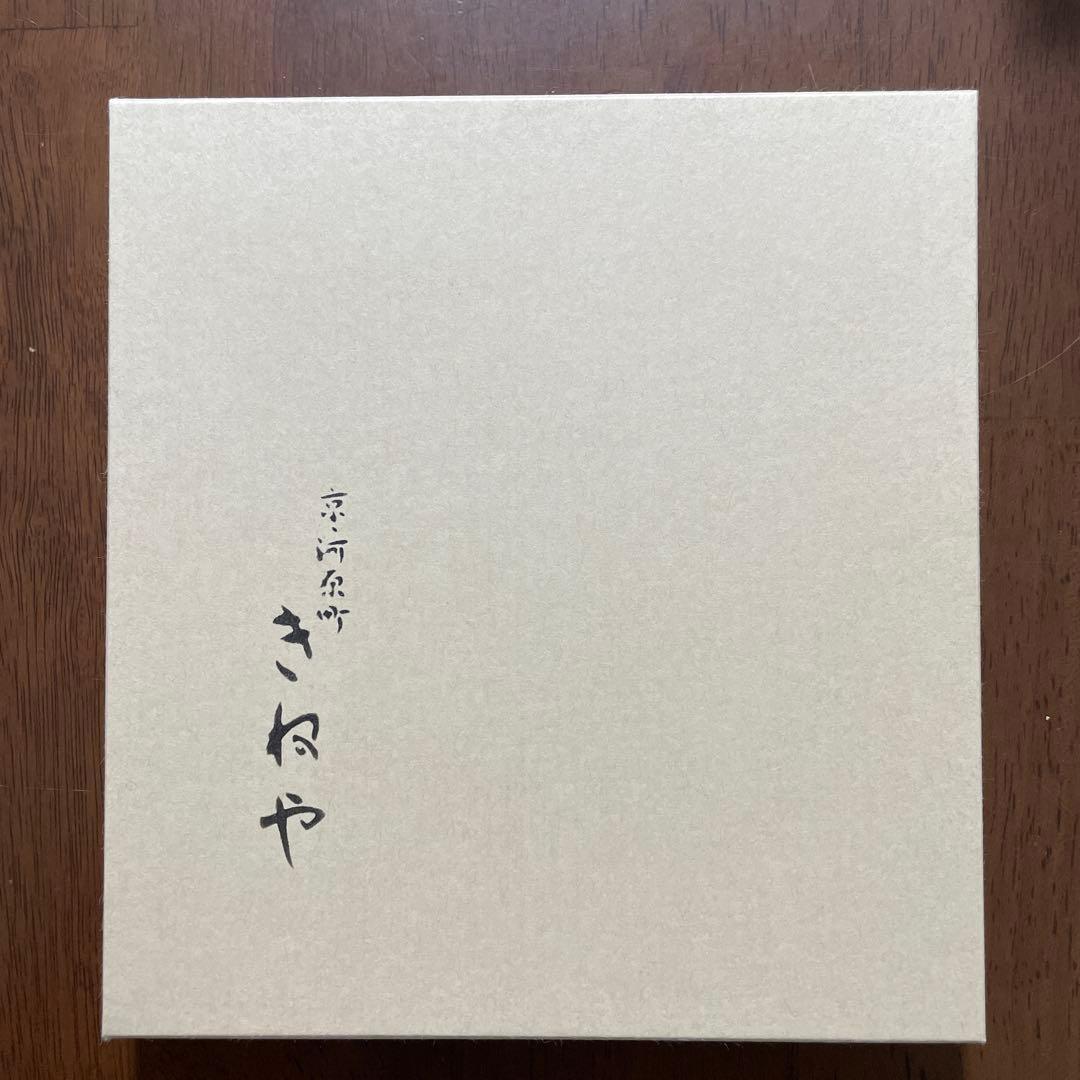 京・河原町
きねや